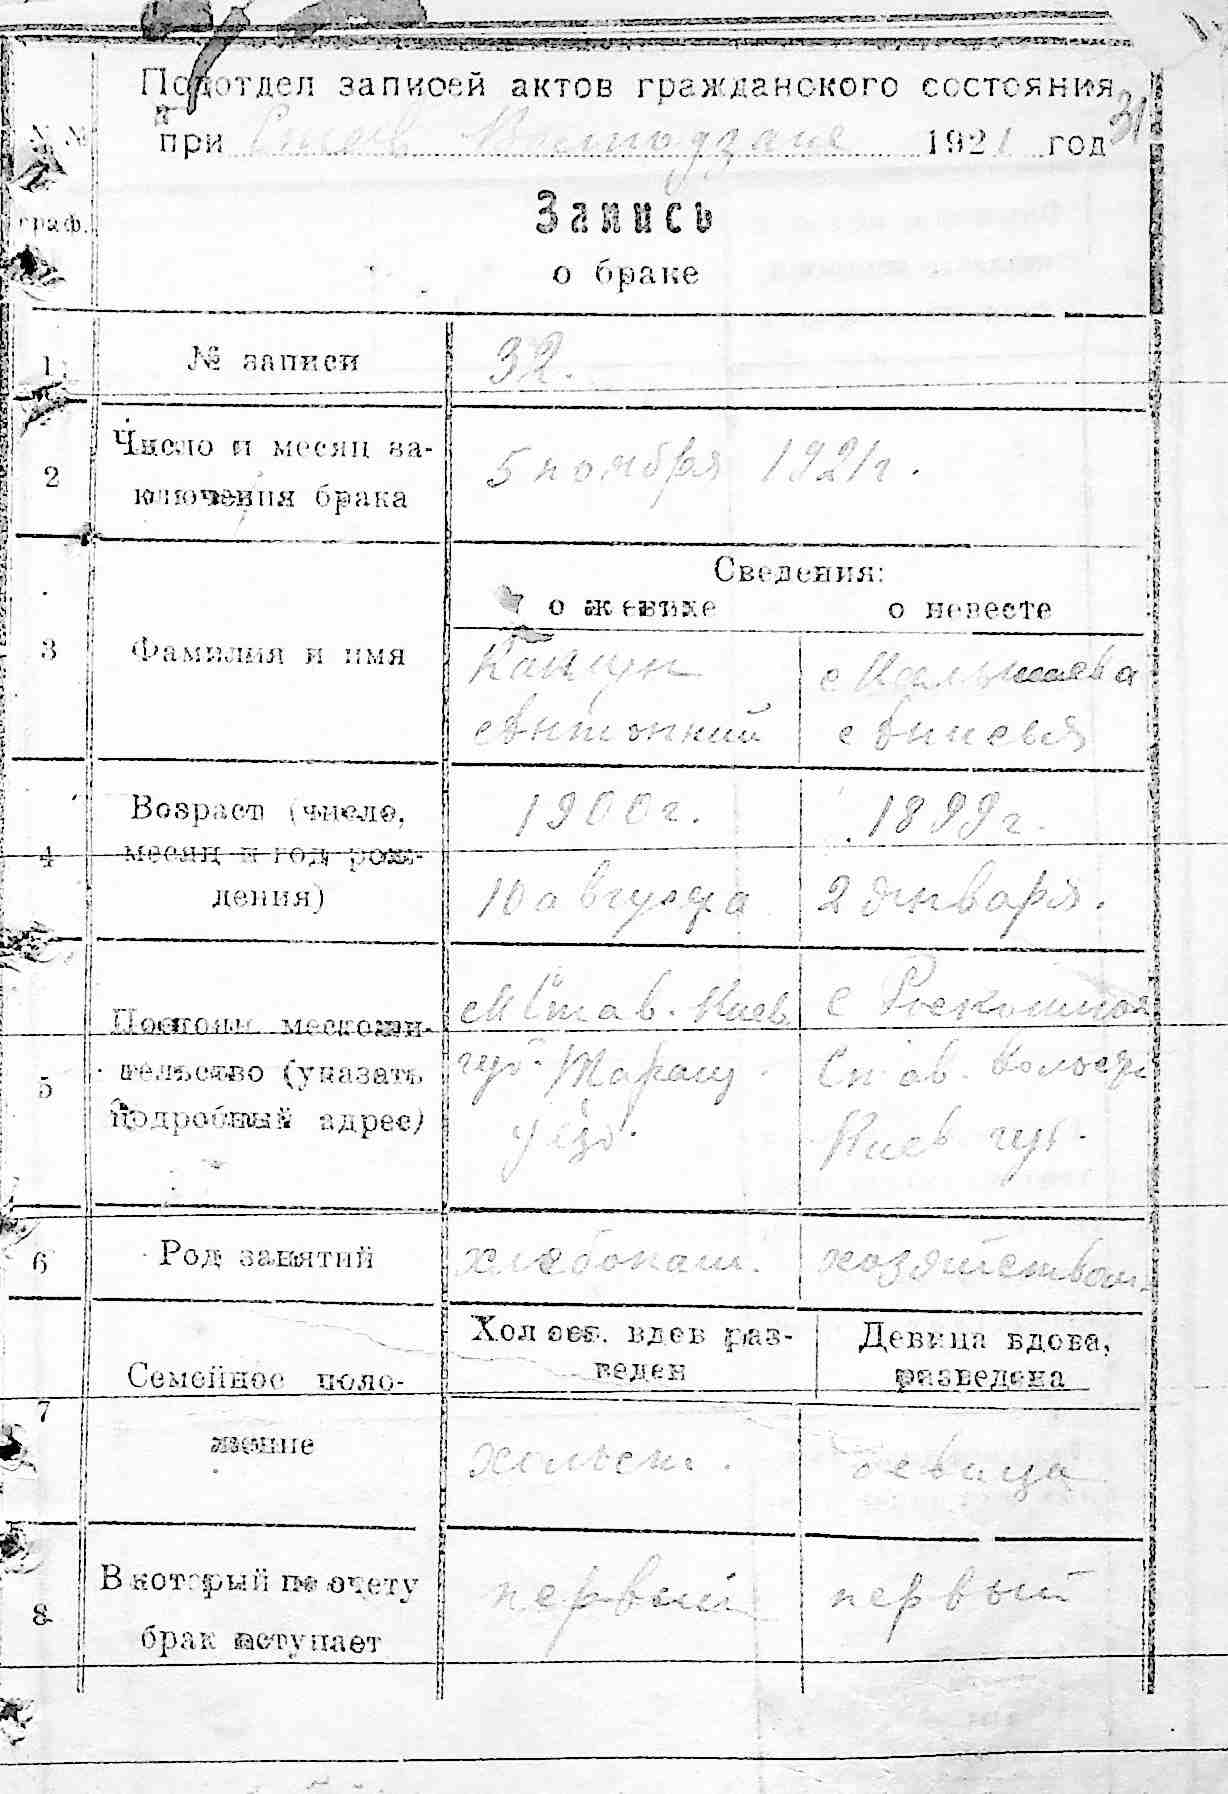 Подотдел записей актов гражданского состояния
31
при 1921 год
№№
граф.
Запись
о браке
1 № записи 32.
2 Число и месяц за-
ключения брака 5 ноября 1921 г.
Сведения:
о женихе о невесте
3 Фамилия и имя
Антоний
4 Возраст (число,
месяц и год рож-
дения)
1900 г. 1899 г.
10 августа 2 января.
5 Постоян. местожи-
тельство (указать
подробный адрес)
Став. Киев. с
губ. Таращ.
уезд. Киев. губ.
6 Род занятий хлебопаш.
7 Семейное поло-
жение
Холост. вдов раз-
веден
Девица вдова,
разведена
холост. девица
8 В который по счету
брак вступает
первый первый